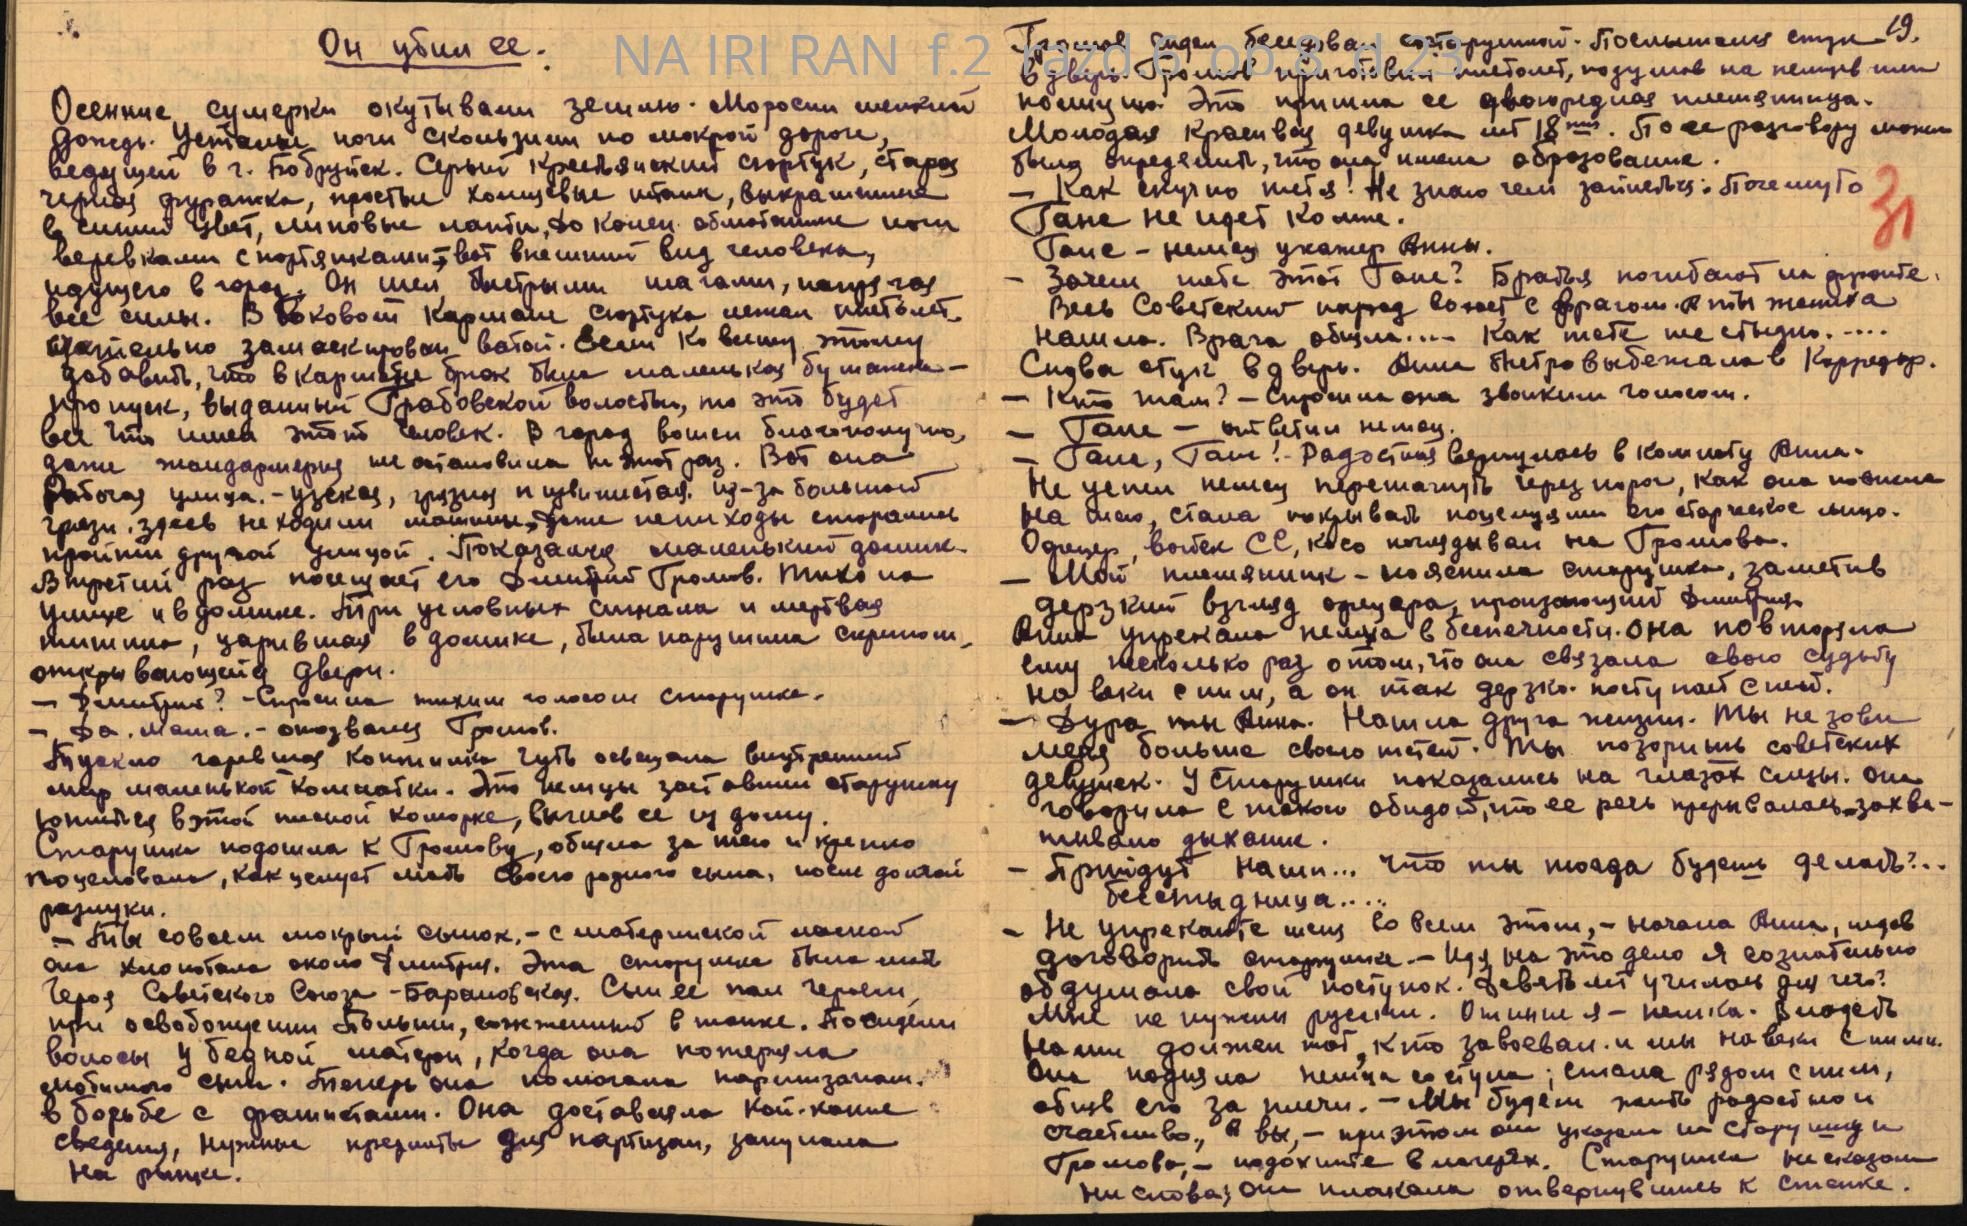 NA IRI RAN f.2 razd.6 op.8 d.23
Он убил ее.
Осенние сумерки окутывали землю. Моросил мелкий
дождь. Усталые ноги скользили по мокрой дороге,
ведущей в г. Бобруйск. Серый крестьянский сюртук, старая
черная фуражка, простые холщевые штаны, выкрашенные
в синий цвет, липовые лапти, до колен обмотанные ноги
веревками с портянками, – вот внешний вид человека,
идущего в город. Он шел быстрыми шагами, напрягая
все силы. В боковом кармане сюртука лежал пистолет
тщательно замаскирован ватой. Если ко всему этому
добавить, что в кармане брюк была маленькая бумажка –
пропуск, выданный Грабовской волостью, то это будет
все что имел этот человек. В город вошел благополучно,
даже жандармерия не остановила на этот раз. Вот она
Рабочая улица. – узкая, грязная и извилистая. Из-за большой
грязи здесь не ходили машины, даже пешеходы старались
пройти другой улицой. Показался маленький домик.
В третий раз посещает его Дмитрий Громов. Тихо на
улице и в домике. Три условных сигнала и мертвая
тишина, царившая в домике, была нарушена скрипом
открывающейся двери.
– Дмитрий? – Спросила тихим голосом старушка.
– Да. мама. – отозвался Громов.
Тускло горевшая коптилка чуть освещала внутренний
мир маленькой комнатки. Это немцы заставили старушку
ютиться в этой тесной коморке, выгнав ее из дому.
Старушка подошла к Громову, обняла за шею и крепко
поцеловала, как целует мать своего родного сына, после долгой
разлуки.
– Ты совсем мокрый сынок, – с материнской лаской
она хлопотала около Дмитрия. Эта старушка была мать
Героя Советского Союза – Барановская. Сын ее пал героем,
при освобождении Польши, сожженный в танке. Поседели
волосы у бедной матери, когда она потеряла
любимого сына. Теперь она помогала партизанам
в борьбе с фашистами. Она доставляла кой-какие
сведения, нужные предметы для партизан, закупала
на рынке.
19.
Громов сидел беседовал со старушкой. Послышался стук
в дверь. Громов приготовил пистолет, подумав на немцев или
полицию. Это пришла ее двоюродная племянница.
Молодая красивая девушка лет 18ти. По ее разговору можно
было определить, что она имела образование.
– Как скучно тетя! Не знаю чем заняться. Почему то
Ганс не идет ко мне.
31
Ганс – немец ухажер Анны.
– Зачем тебе этот Ганс? Братья погибают на фронте.
Весь Советский народ воюет с врагом. А ты жениха
нашла. Врага обняла.... Как тебе не стыдно.....
Снова стук в дверь. Анна быстро выбежала в корредор.
– Кто там? – спросила она звонким голосом.
– Ганс – ответил немец.
– Ганс, Ганс! – Радостная вернулась в комнату Анна.
Не успел немец перешагнуть через порог, как она повисла
на шею, стала покрывать поцелуями его старческое лицо.
Офицер, войск СС, косо поглядывал на Громова.
– Мой племянник – пояснила старушка, заметив
дерзкий взгляд офицера, пронзающий Дмитрия.
Анна упрекала немца в беспечности. Она повторяла
ему несколько раз о том, что она связала свою судьбу
на веки с ним, а он так дерзко поступает с ней.
– Дура ты Анна. Нашла друга жизни. Ты не зови
меня больше своей тетей. Ты позоришь советских
девушек. У старушки показались на глазах слезы. Она
говорила с такой обидой, что ее речь прерывалась, захва-
тывало дыхание.
– Прийдут наши... что ты тогда будешь делать?...
бесстыдница.....
– Не упрекайте меня во всем этом, – начала Анна, не дав
договорить старушке. – Идя на это дело я сознательно
обдумала свой поступок. Девять лет училась для чего?
Мне не нужны русские. Отныне я – немка. Владеть
нами должен тот, кто завоевал. и мы на веки с ними.
Она подняла немца со стула; стала рядом с ним,
обняв его за плечи. – Мы будем жить радостно и
счастливо, А вы, – при этом она указала на старушку и
Громова, – подохните в лагерях. Старушка не сказала
ни слова; она плакала отвернувшись к стенке.